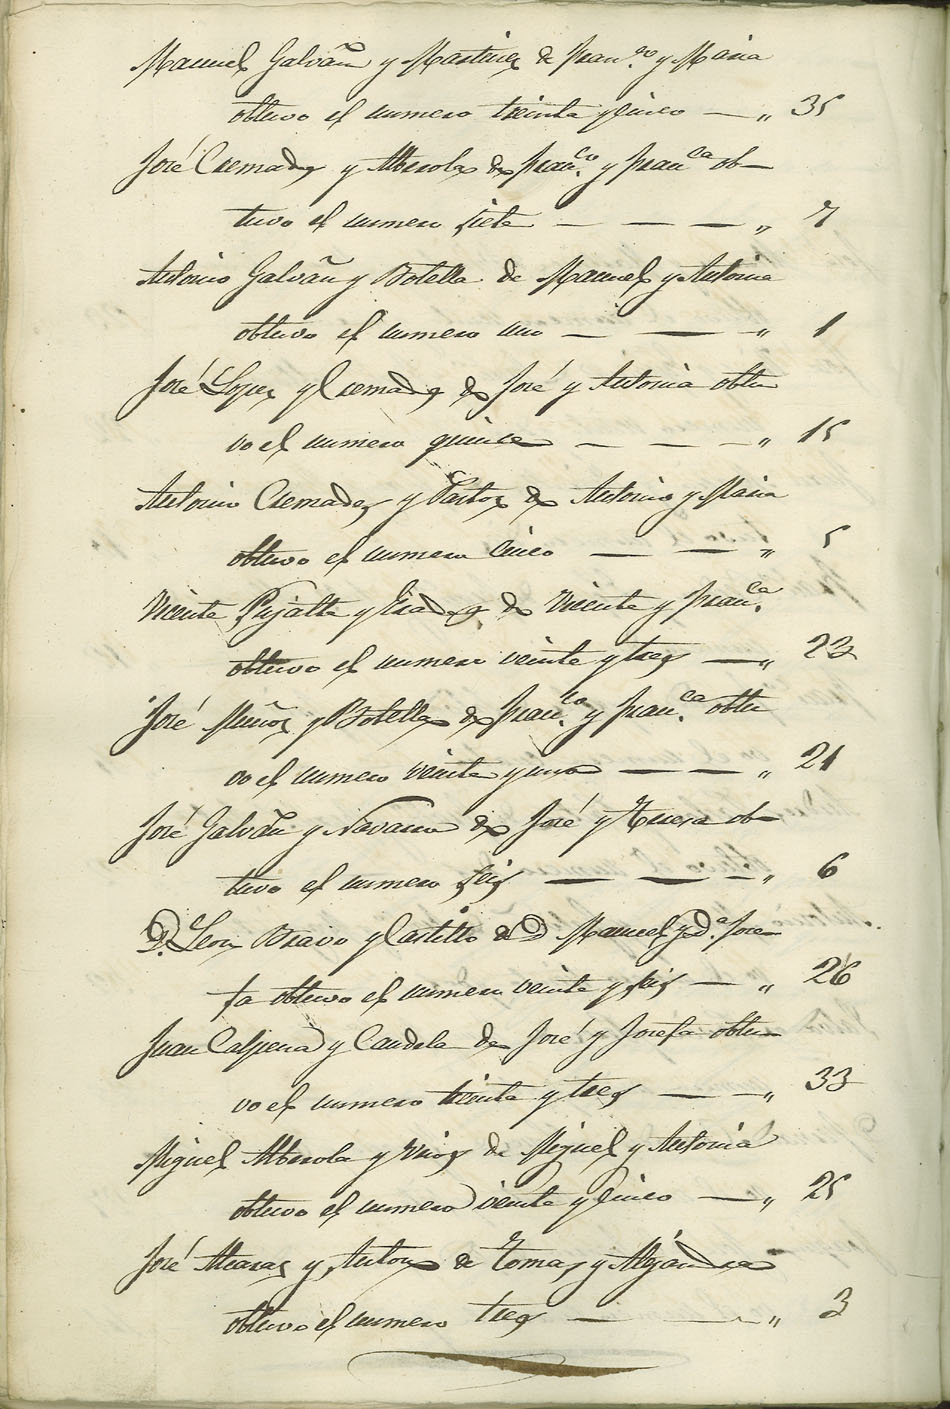 Manuel Galvañ y Martinez de Fran.co y Maria
obtuvo el numero treinta y cinco — „ 35
José Cremades y Alberola de Fran.co y Fran.ca ob-
tuvo el numero siete — — — „ 7
Antonio Galvañ y Botella de Manuel y Antonia
obtuvo el numero uno — — „ 1
José Lopez y Cremades de José y Antonia obtu
vo el numero quince — — — „ 15
Antonio Cremades y de Antonio y Maria
obtuvo el numero cinco — — „ 5
Vicente Pujalte y de Vicente y Fran.ca
obtuvo el numero veinte y tres — „ 23
José Muñoz y Botella de Fran.co y Fran.ca obtu
vo el numero veinte y uno — — „ 21
José Galvañ y Navarro de José y Teresa ob-
tuvo el numero seis — — — „ 6
D. Leon Bravo y Castillo de D Manuel y D.a Jose-
fa obtuvo el numero veinte y seis — „ 26
Juan Calpena y Candela de José y Josefa obtu-
vo el numero treinta y tres — — „ 33
Miguel Alberola y de Miguel y Antonia
obtuvo el numero veinte y cinco — „ 25
José y de Tomas y Alejandra
obtuvo el numero tres — — „ 3